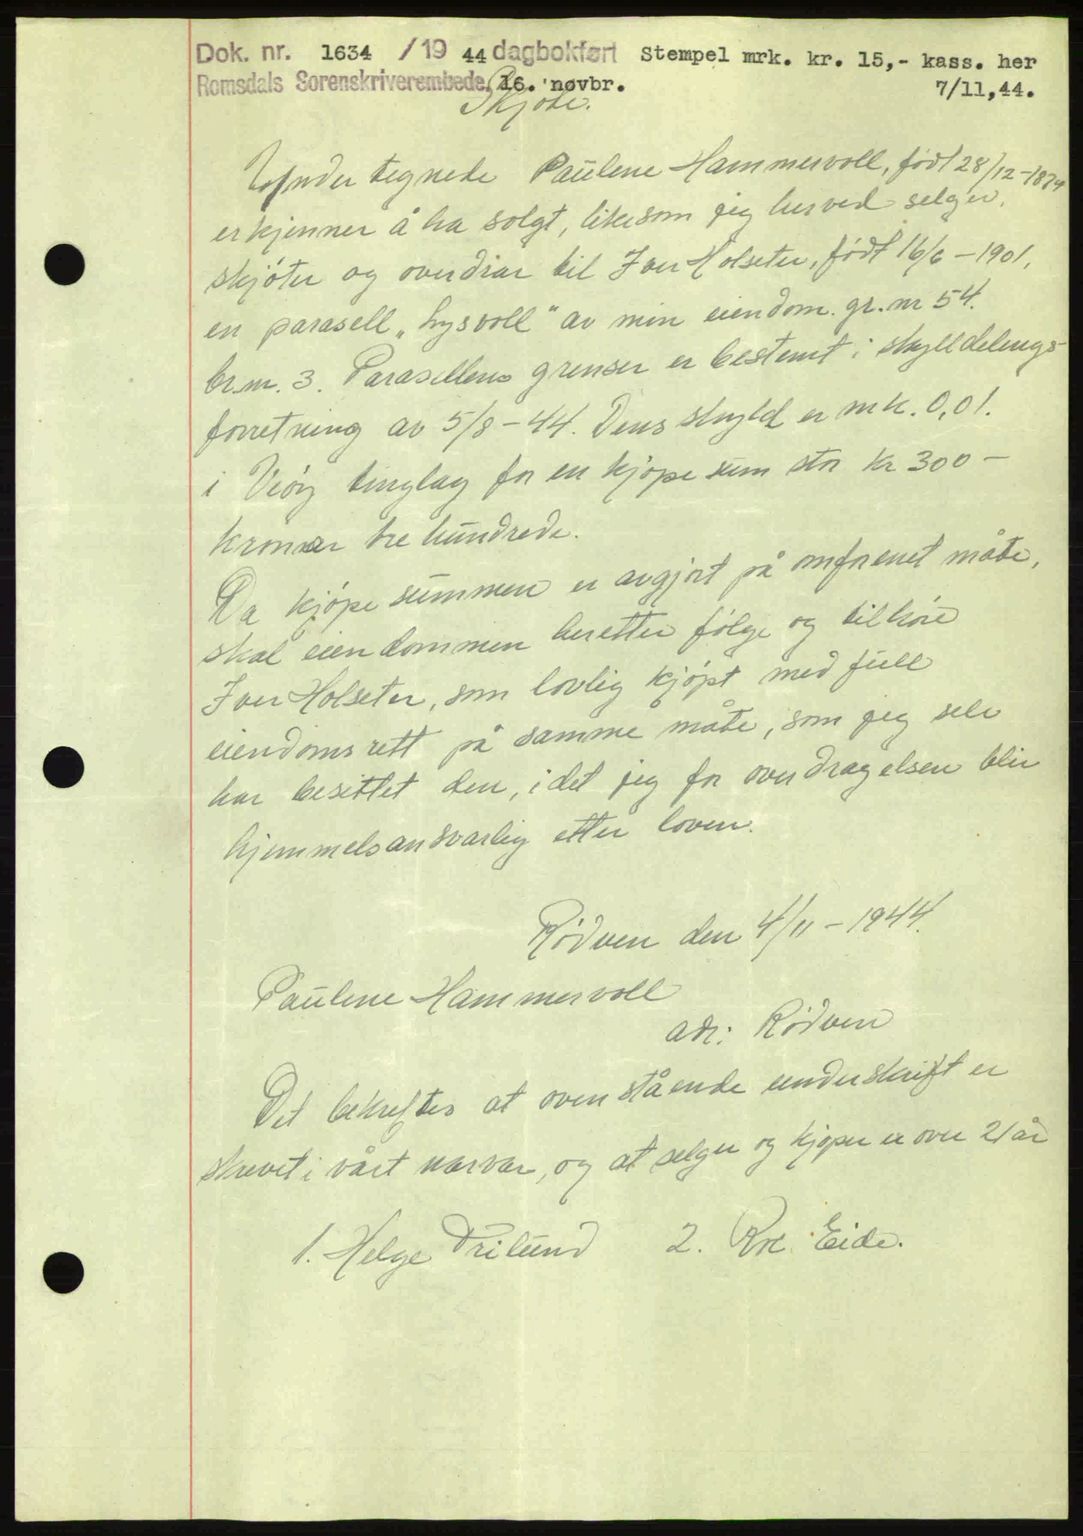 Dok. nr. 1634 /19 44 dagbokført Stempel mrk. kr. 15,- kass. her
Romsdals Sorenskriverembede, 16. novbr. 7/11,44.
Skjøte.
Undertegnede Paulene Hammervoll, født 28/12-1874
erkjenner å ha solgt, likesom jeg herved selger,
skjøter og overdrar til Iver Holseter, født 16/6-1901,
en parasell „Lysvoll" av min eiendom. gr. nr 54.
br.nr. 3. Parasellens grenser er bestemt i skylddelings-
forretning av 5/8-44. Dens skyld er mk. 0,01.
i Veøy tinglag for en kjøpesum stor kr 300-
kroner tre hundrede.
Da kjøpesummen er avgjort på omforenet måte,
skal eiendommen heretter følge og tilhøre
Iver Holseter, som lovlig kjøpt med full
eiendomsrett på samme måte, som jeg selv
har besittet den, idet jeg for overdragelsen blir
hjemmelsansvarlig etter loven.
Rødven den 4/11-1944.
Paulene Hammervoll
adr: Rødven
Det bekreftes at ovenstående underskrift er
skrevet i vårt nærvær, og at selger og kjøper er over 21 år
1. Helge 2. Eide.